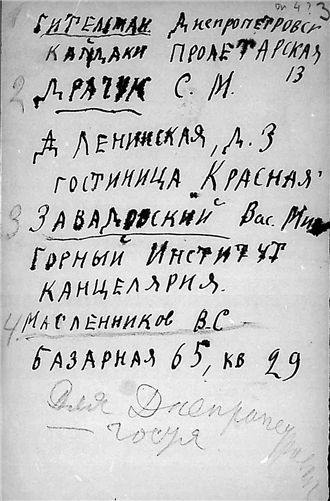 1 Гительман Днепропетровск
Кайдаки Пролетарская
13
2 Драчук С. М.
Д Ленинская, д. 3
гостиница "Красная"
3 Завадовский Вас. Мих
Горный Институт
канцелярия.
4 Масленников В.С
Базарная 65, кв 29
Для Днепропетров